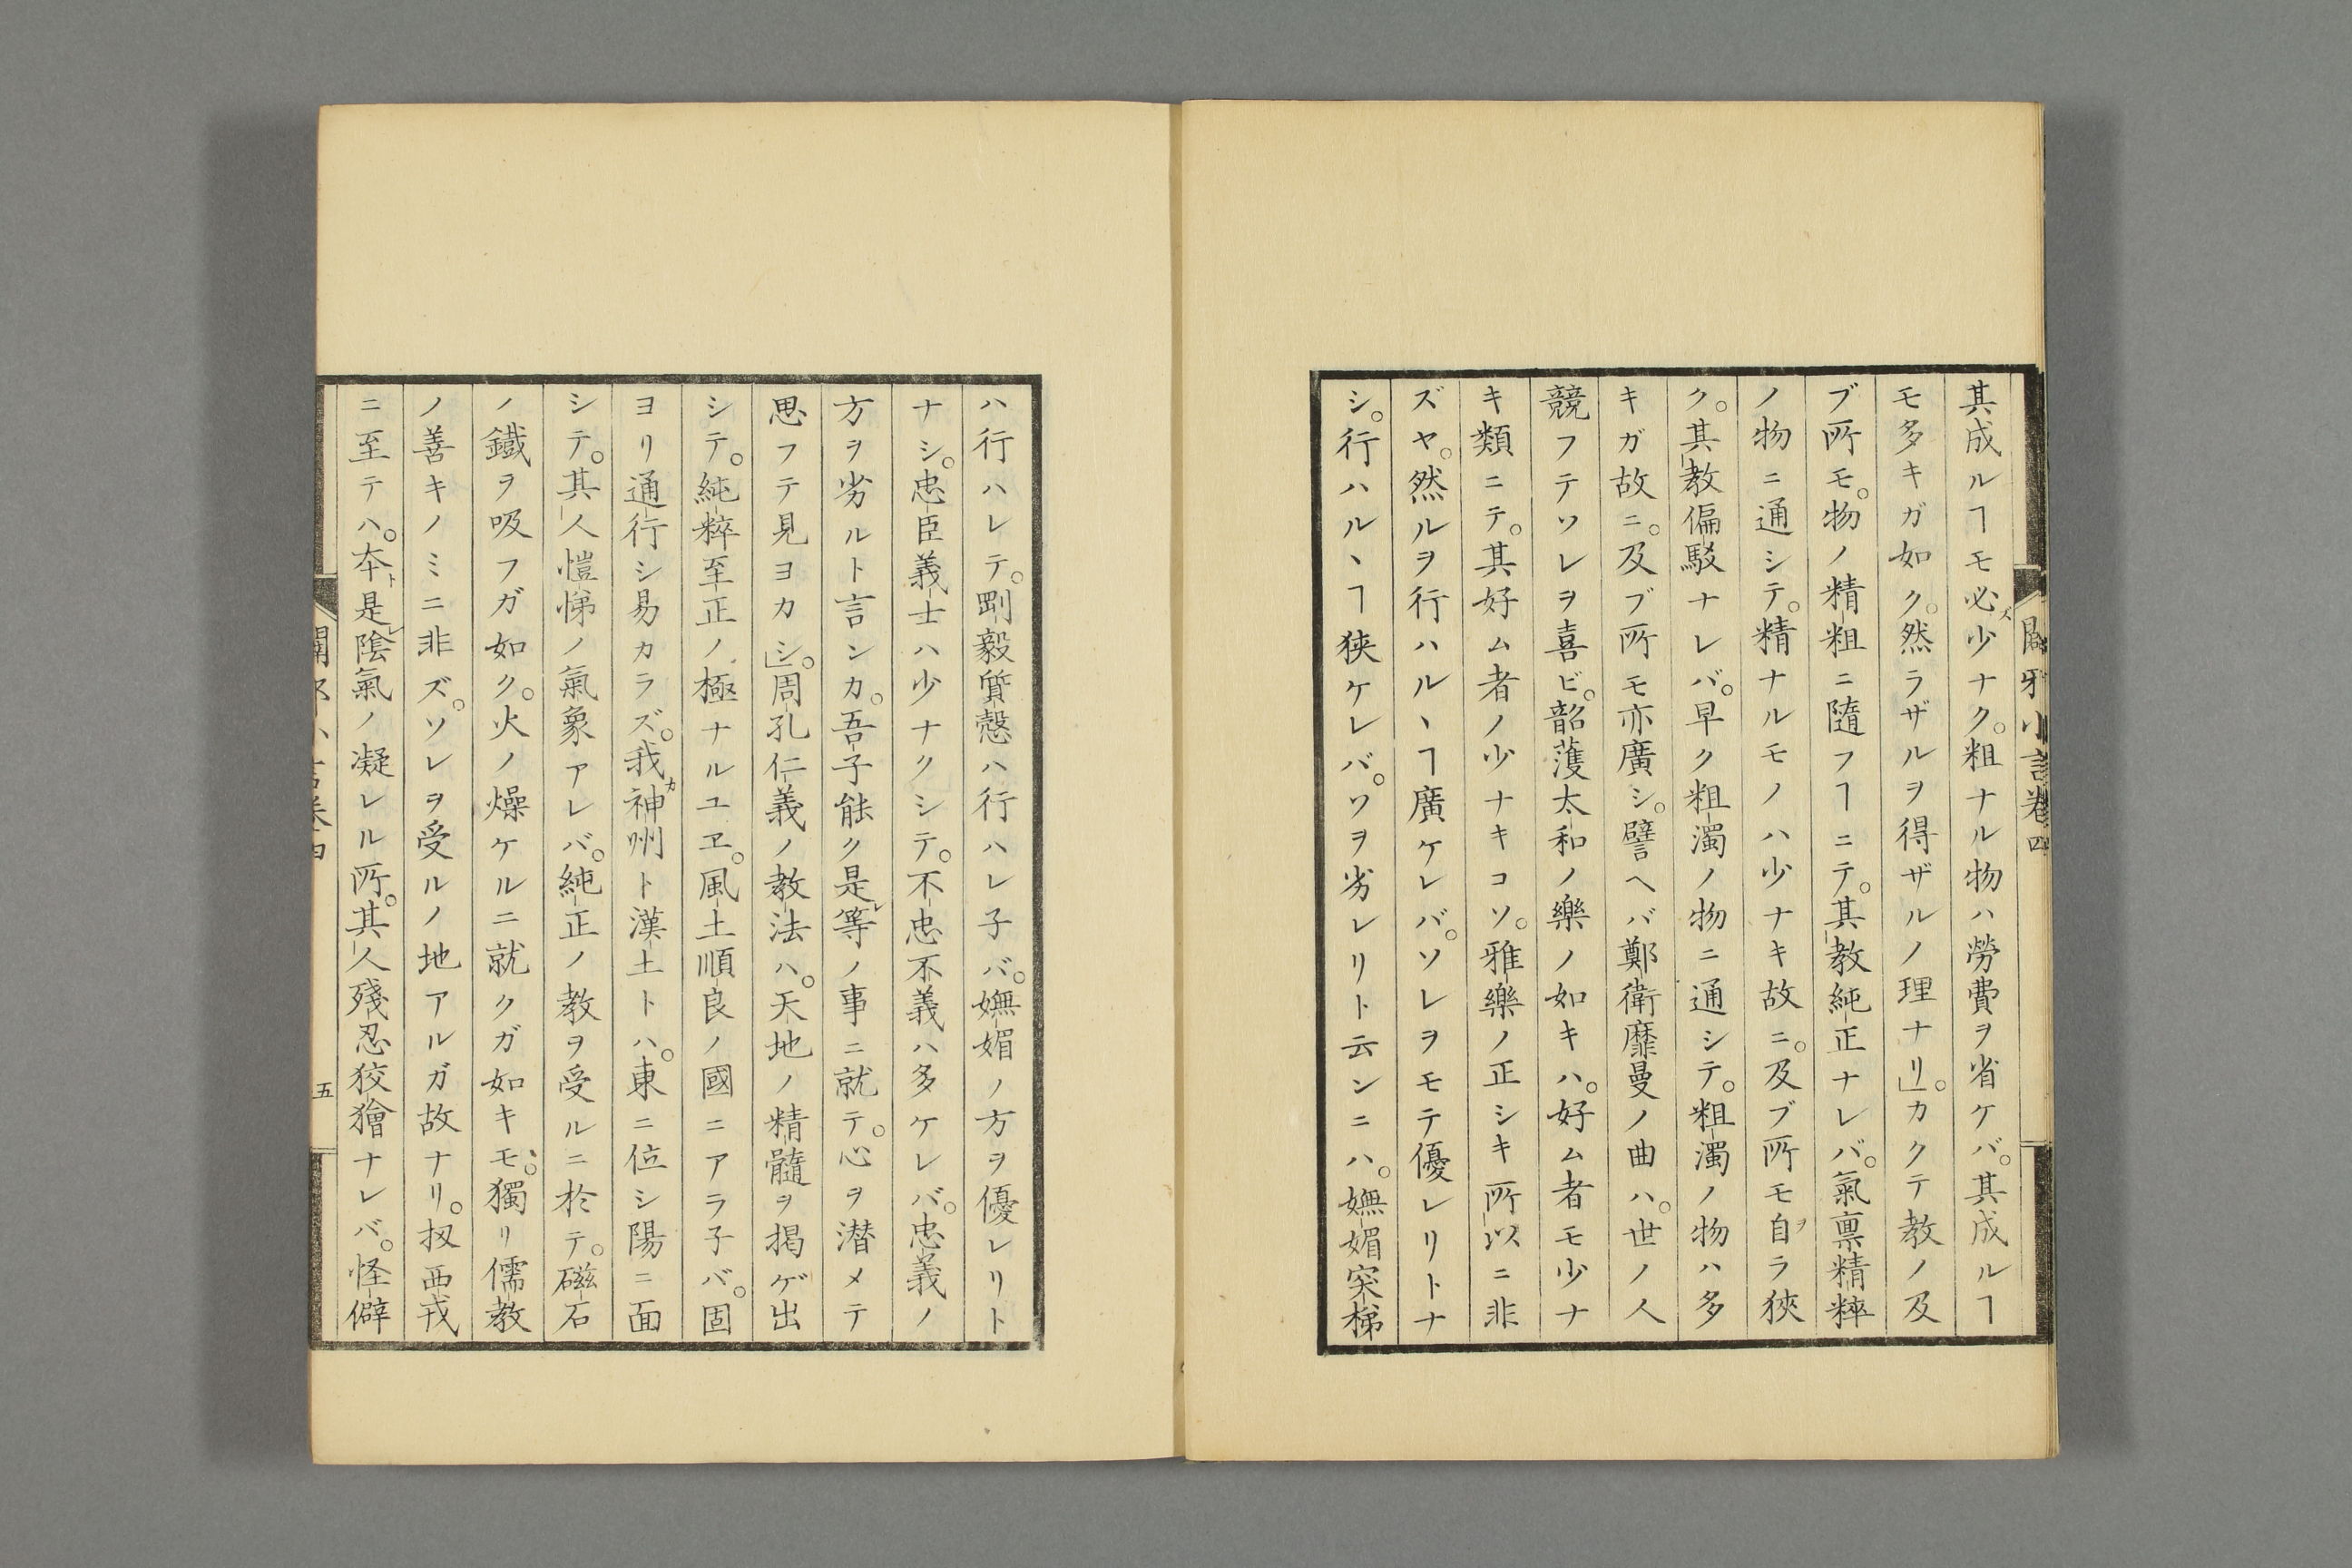 其成ルヿモ必ズ少ナク。粗ナル物ハ勞費ヲ省ケバ。其成ルヿ
モ多キガ如ク。然ラザルヲ得ザルノ理ナリ」。カクテ教ノ及
ブ所モ。物ノ精粗ニ隨フヿニテ。其教純正ナレバ。氣禀精粹
ノ物ニ通シテ。精ナルモノハ少ナキ故ニ。及ブ所モ自ヲラ狹
ク。其教偏駁ナレバ。早ク粗濁ノ物ニ通シテ。粗濁ノ物ハ多
キガ故ニ。及ブ所モ亦廣シ。譬ヘバ鄭衛靡曼ノ曲ハ。世ノ人
競フテソレヲ喜ビ。韶頀太和ノ樂ノ如キハ。好ム者モ少ナ
キ類ニテ。其好ム者ノ少ナキコソ。雅樂ノ正シキ所以ニ非
ズヤ。然ルヲ行ハルヽヿ廣ケレバ。ソレヲモテ優レリトナ
シ。行ハルヽヿ狹ケレバ。ソヲ劣レリト云ンニハ。嫵媚突梯
闢邪小言卷四
ハ行ハレテ。剛毅質慤ハ行ハレ子バ。嫵媚ノ方ヲ優レリト
ナシ。忠臣義士ハ少ナクシテ。不忠不義ハ多ケレバ。忠義ノ
方ヲ劣ルト言ンカ。吾子能ク是レ等ノ事ニ就テ。心ヲ潜メテ
思フテ見ヨカシ」。周孔仁義ノ教法ハ。天地ノ精髓ヲ掲ゲ出
シテ。純粹至正ノ極ナルユヱ。風土順良ノ國ニアラ子バ。固
ヨリ通行シ易カラズ。我カ神州ト漢土トハ。東ニ位シ陽ニ面
シテ。其人愷悌ノ氣象アレバ。純正ノ教ヲ受ルニ於テ。磁石
ノ鐵ヲ吸フガ如ク。火ノ燥ケルニ就クガ如キモ。獨リ儒教
ノ善キノミニ非ズ。ソレヲ受ルノ地アルガ故ナリ。扨西戎
ニ至テハ。本ト是レ陰氣ノ凝レル所。其人殘忍狡獪ナレバ。怪僻
五